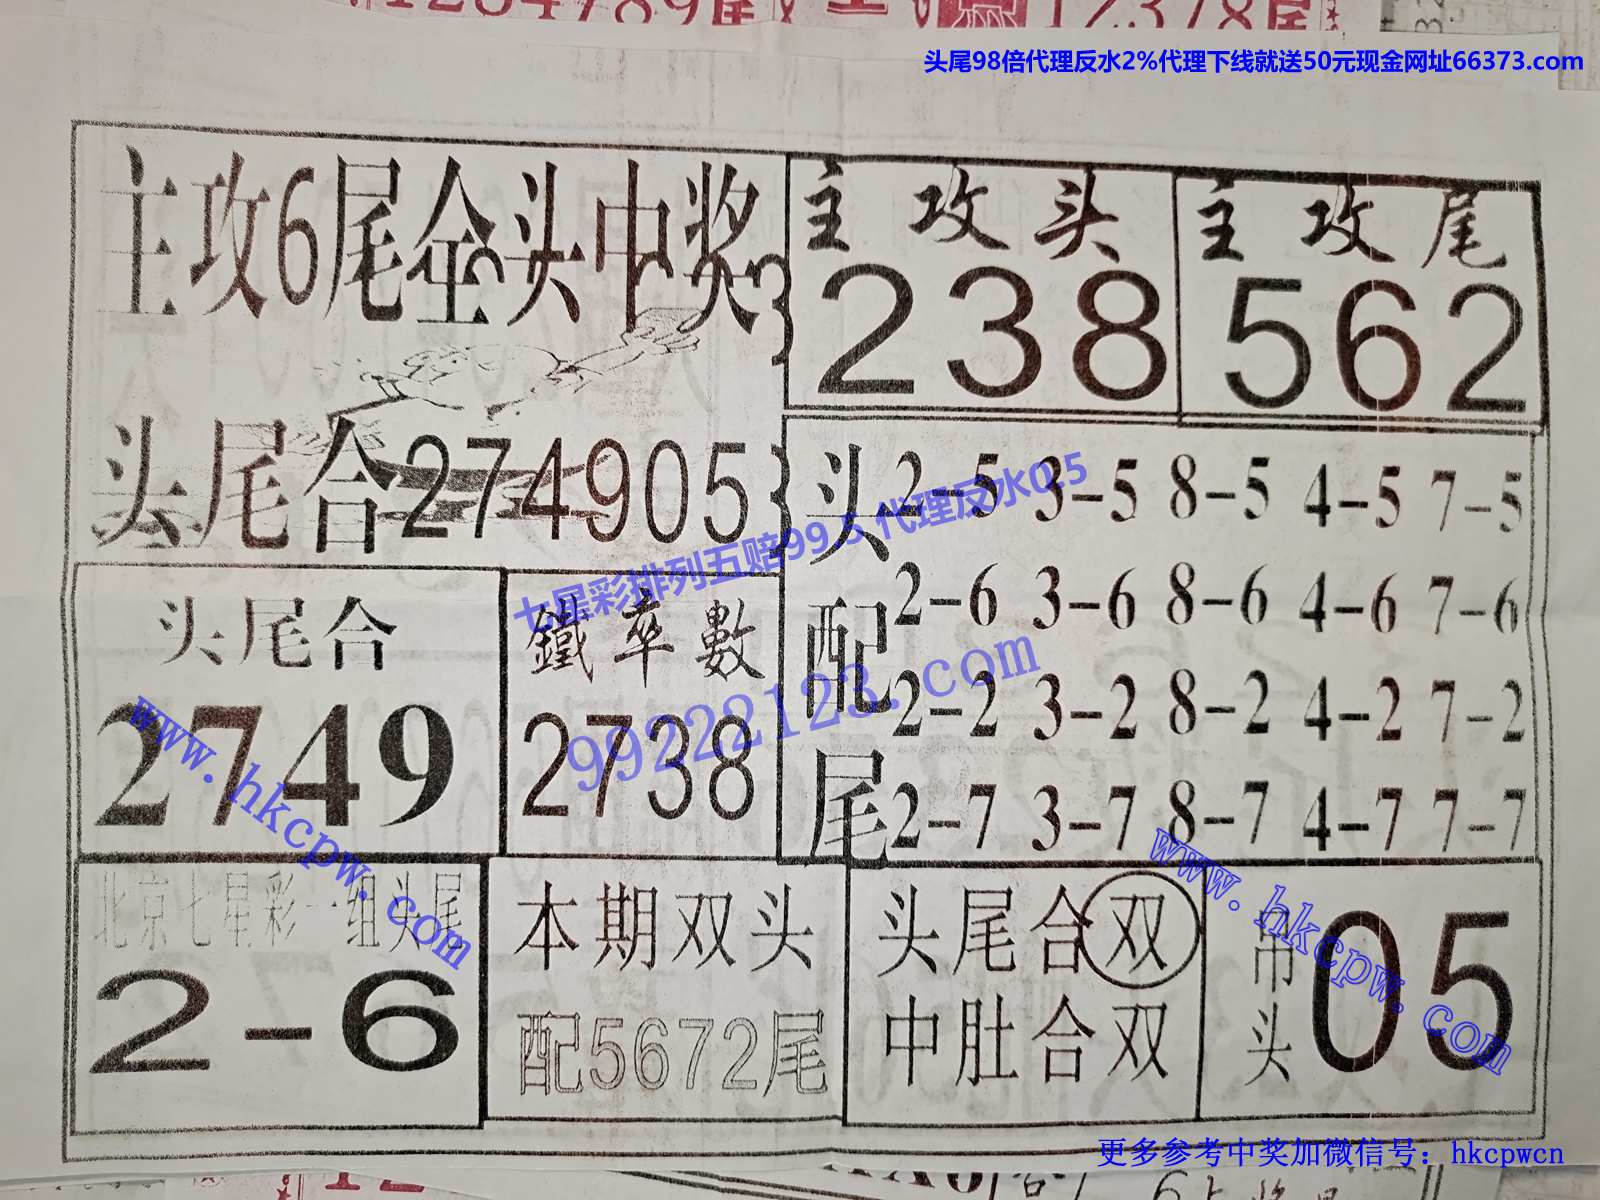 头尾98倍代理反水2%代理下线就送50元现金网址66373.com
主攻6尾全头中奖
主攻头
238
主攻尾
562
头尾合274905
头配尾
2-5 3-5 8-5 4-5 7-5
2-6 3-6 8-6 4-6 7-6
2-2 3-2 8-2 4-2 7-2
2-7 3-7 8-7 4-7 7-7
七星彩排列五赔99.5代理反水0.5
99222123.com
头尾合
2749
鐵率數
2738
www.hkcpw.com
北京七星彩一组头尾
2-6
本期双头
配5672尾
头尾合双
中肚合双
吊头
05
www.hkcpw.com
更多参考中奖加微信号：hkcpwcn